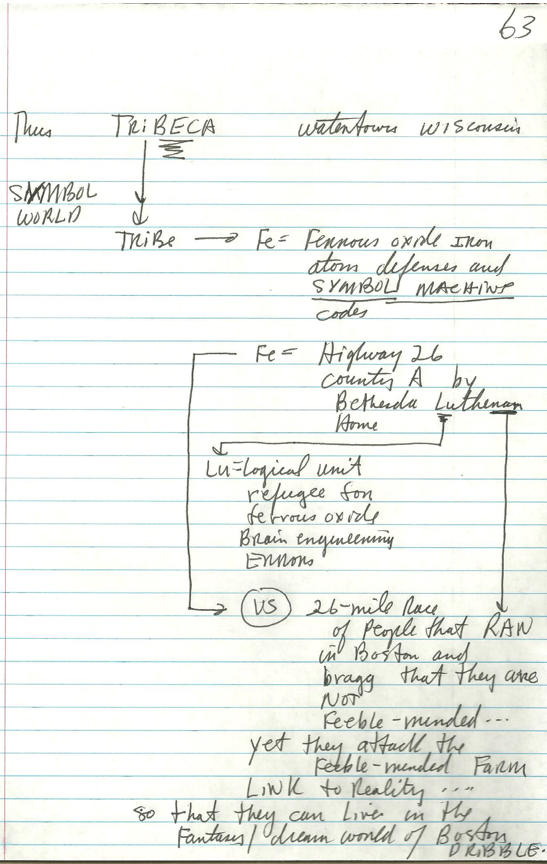 63
Thus TRiBECA Watertown Wisconsin
SYMBOL
WORLD
TRiBe → Fe = Ferrous oxide Iron
atom defenses and
SYMBOL MACHINE
codes
Fe = Highway 26
county A by
Bethesda Lutheran
Home
Lu = Logical unit
refugee for
ferrous oxide
Brain engineering
ERRORS
VS 26-mile Race
of People that RAN
in Boston and
bragg that they are
NOT
Feeble-minded...
yet they attack the
Feeble-minded FARM
LINK to Reality ....
so that they can Live in the
Fantasy/dream world of Boston
DRiBBLE.